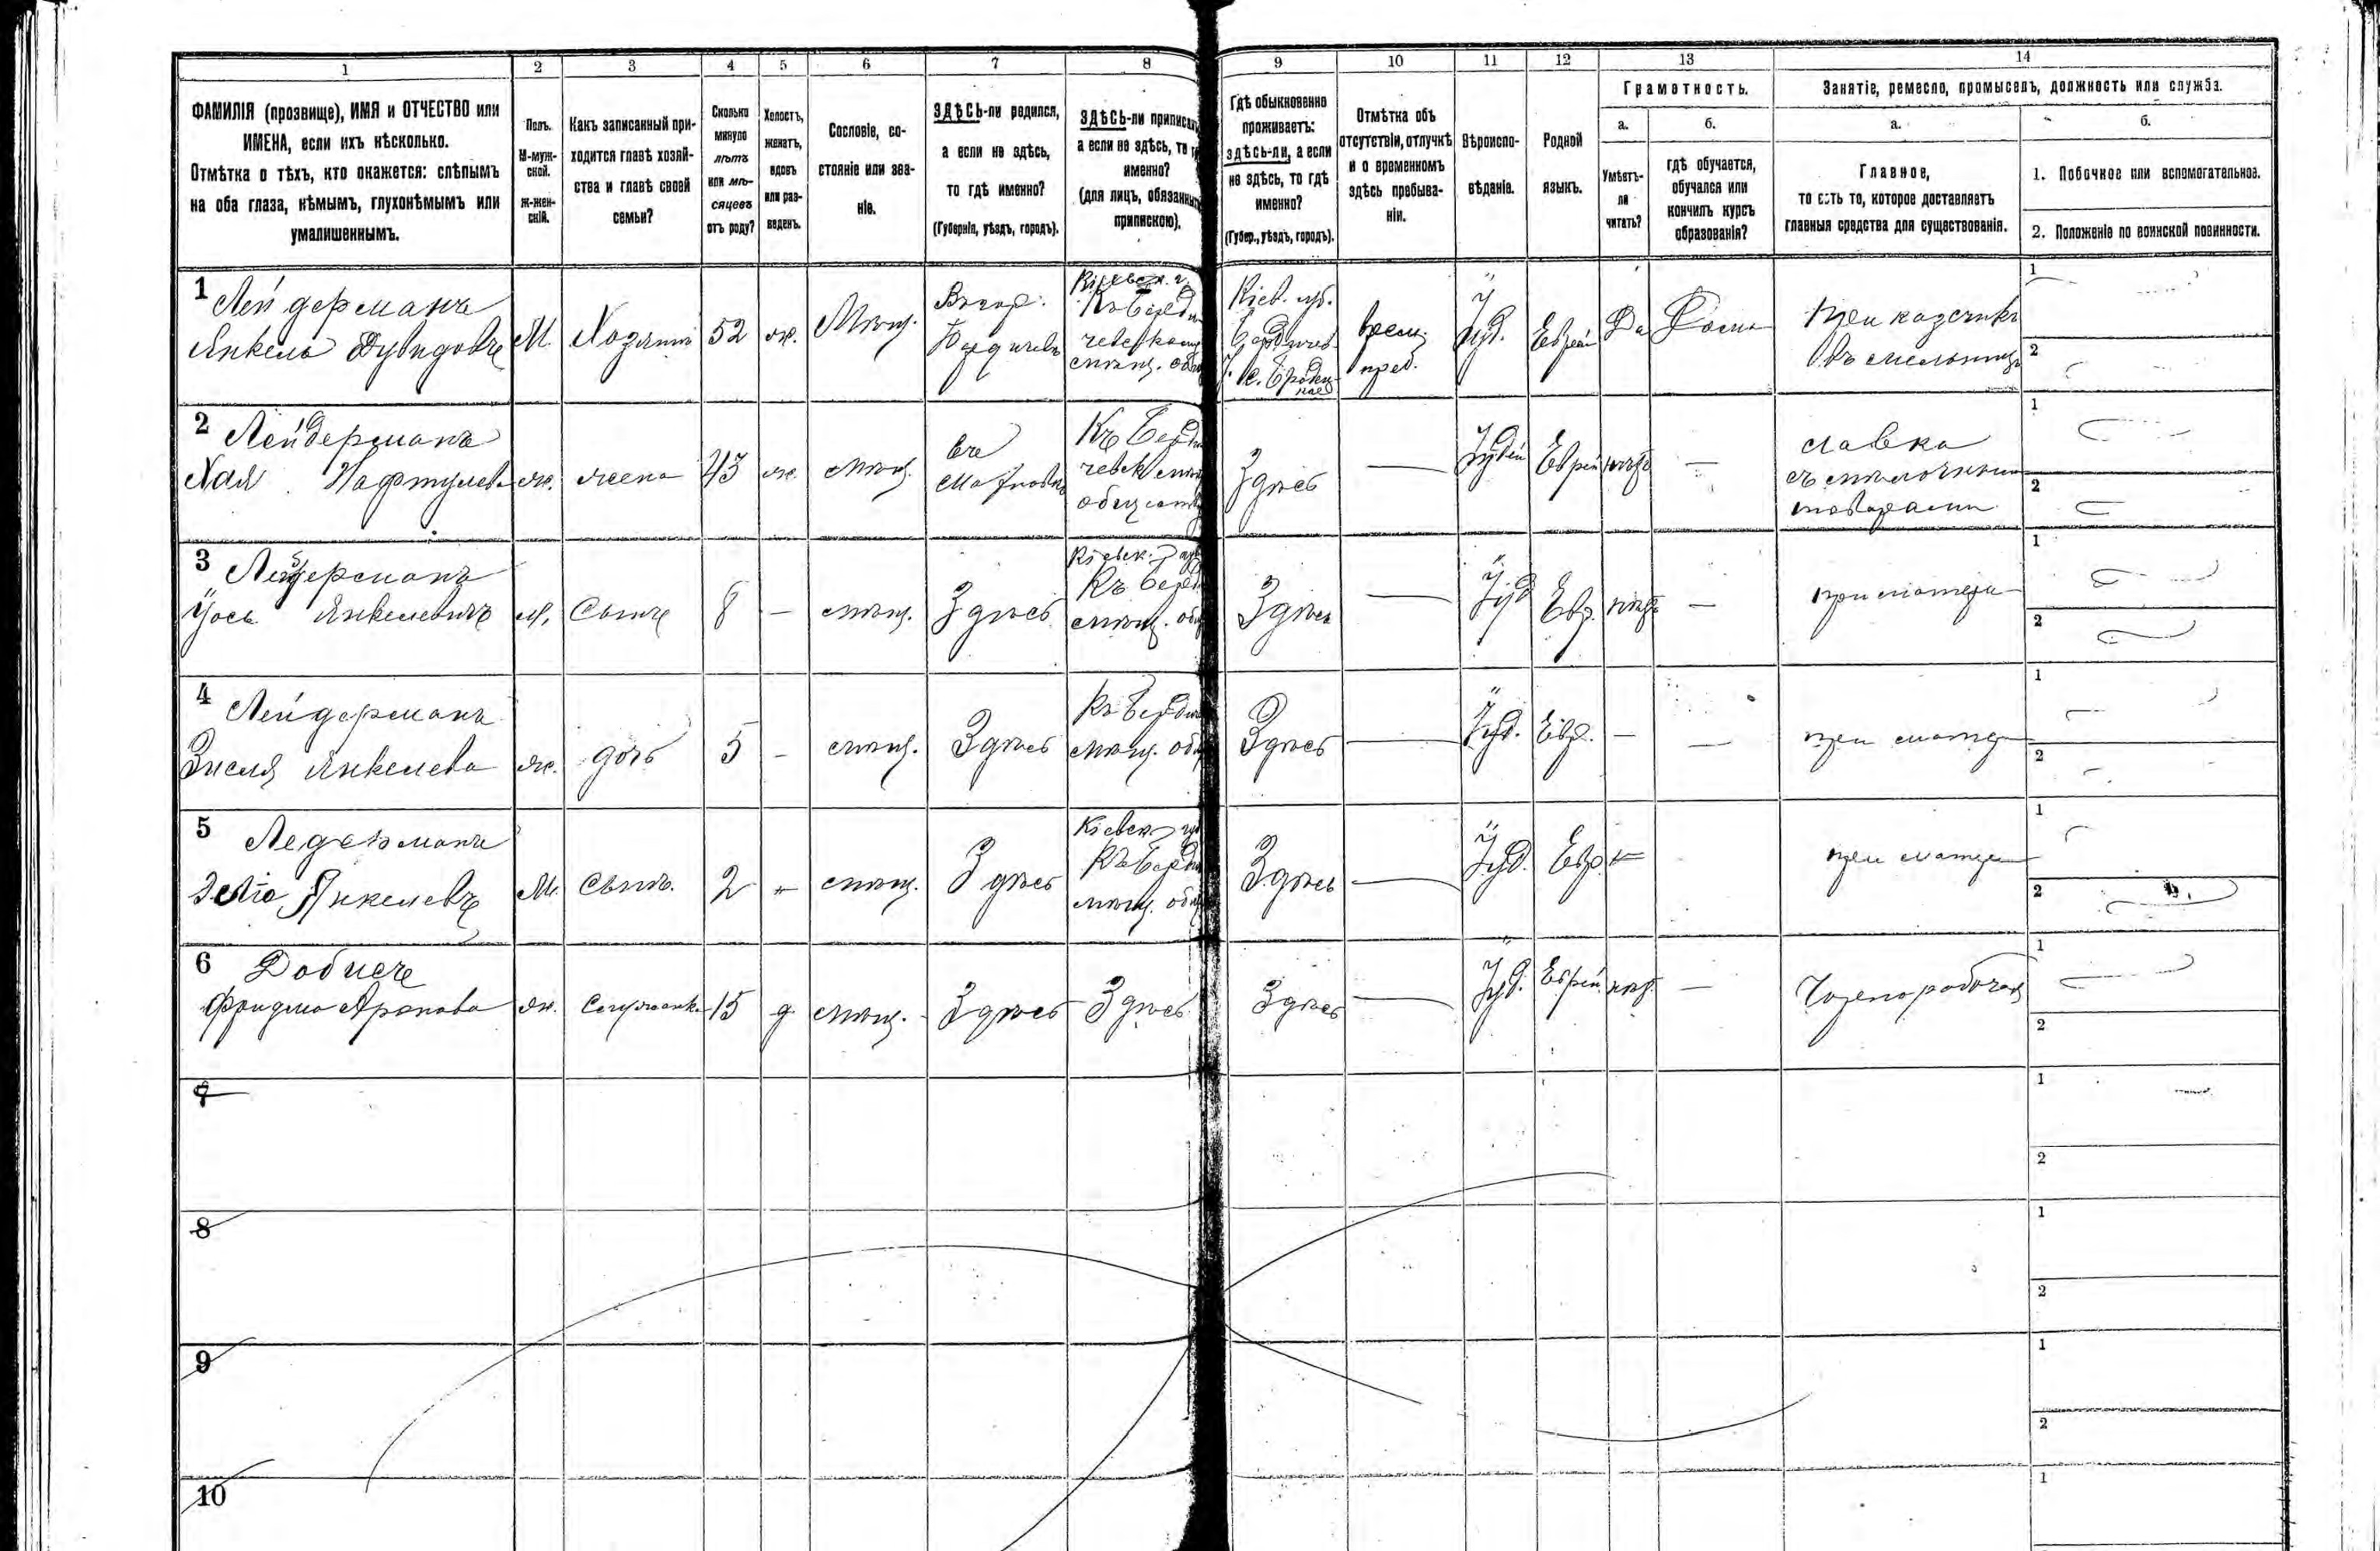 1 2 3 4 5 6 7 8 9 10 11 12 13 14
ФАМИЛІЯ (прозвище), ИМЯ и ОТЧЕСТВО или
ИМЕНА, если ихъ нѣсколько.
Отмѣтка о тѣхъ, кто окажется: слѣпымъ
на оба глаза, нѣмымъ, глухонѣмымъ или
умалишеннымъ.
Полъ.
М-муж-
ской.
Ж-жен-
скій.
Какъ записанный при-
ходится главѣ хозяй-
ства и главѣ своей
семьи?
Сколько
минуло
лѣтъ
или мѣ-
сяцевъ
отъ роду?
Холостъ,
женатъ,
вдовъ
или раз-
веденъ.
Сословіе, со-
стояніе или зва-
ніе.
ЗДѢСЬ-ли родился,
а если не здѣсь,
то гдѣ именно?
(Губернія, уѣздъ, городъ).
ЗДѢСЬ-ли приписанъ,
а если не здѣсь, то гдѣ
именно?
(для лицъ, обязанныхъ
припискою).
Гдѣ обыкновенно
проживаетъ:
здѣсь-ли, а если
не здѣсь, то гдѣ
именно?
(Губер., уѣздъ, городъ).
Отмѣтка объ
отсутствіи, отлучкѣ
и о временномъ
здѣсь пребыва-
ніи.
Вѣроиспо-
вѣданіе.
Родной
языкъ.
Грамотность.
а.
Умѣетъ-
ли
читать?
б.
гдѣ обучается,
обучался или
кончилъ курсъ
образованія?
Занятіе, ремесло, промыселъ, должность или служба.
а.
Главное,
то есть то, которое доставляетъ
главныя средства для существованія.
б.
1. Побочное или вспомогательное.
2. Положеніе по воинской повинности.
1 Лейдерманъ
Янкель Дувидовъ
М Хозяинъ 52 ж. Мѣщ.
Въ гор.
Бердичевѣ
Кіевск. г.
Къ Берди-
чевском
мѣщ. общ
Кіев. губ.
Бердичев
врем.
преб.
Іуд. Еврей Да Дома
Приказчикъ
въ мельницѣ
1
2
2 Лейдерманъ
Хая Нафтулева
ж. жена 43 ж. мѣщ.
Къ Берди
чевск мѣщ
обществ
Здѣсь — Іудей Еврей нѣтъ —
лавка
съ мѣлочными
товарами
1
2
3 Лейдерманъ
Іось Янкелевичъ
м. Сынъ 8 — мѣщ. Здѣсь
Кіевск.
Къ Берд
мѣщ. общ
Здѣсь — Іуд Евр. нѣтъ —
при матери
1
2
4 Лейдерманъ
Зисля Янкелева
ж. дочь 5 - мѣщ. Здѣсь
Къ Берди
мѣщ. общ
Здѣсь — Іуд. Евр. — —
при матери
1
2
5 Ледерманъ
Янкелевъ
М. Сынъ. 2 - мѣщ. Здѣсь
Кіевск губ
Къ Берди
мѣщ. общ
Здѣсь — Іуд. Евр. —
при матери
1
2
6
Фридма Аронова
ж. Служанка 15 д. мѣщ. Здѣсь Здѣсь
Здѣсь — Іуд. Еврей. нѣт. —
Чернорабочая
1
2
7
1
2
8
1
2
9
1
2
10
1